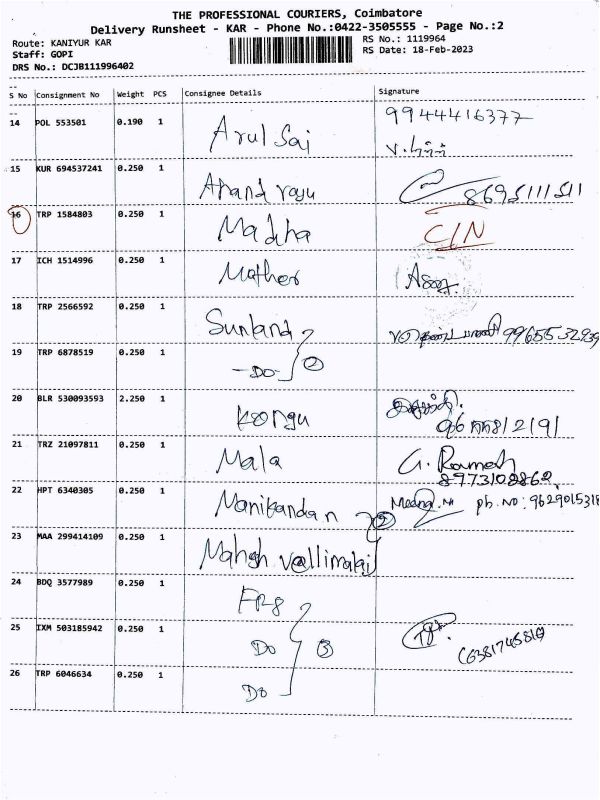 THE PROFESSIONAL COURIERS, Coimbatore
Delivery Runsheet - KAR - Phone No.:0422-3505555 - Page No.:2
Route: KANIYUR KAR
RS No.: 1119964
Staff: GOPI
RS Date: 18-Feb-2023
DRS No.: DCJB111996402
S No Consignment No Weight PCS Consignee Details Signature
14 POL 553501 0.190 1 Arul Sai 9944416377
15 KUR 694537241 0.250 1 Anand raju 8695111511
16 TRP 1584803 0.250 1 C/N
17 ICH 1514996 0.250 1 Mather
18 TRP 2566592 0.250 1 Sunland 9965532939
19 TRP 6878519 0.250 1 -Do- 2
20 BLR 530093593 2.250 1 Kongu
21 TRZ 21097811 0.250 1 Mala G. Ramesh
8973108862
22 HPT 6340305 0.250 1 Manikandan 2 ph. no: 9629015318
23 MAA 299414109 0.250 1
24 BDQ 3577989 0.250 1
25 IXM 503185942 0.250 1 Do 3
26 TRP 6046634 0.250 1 Do